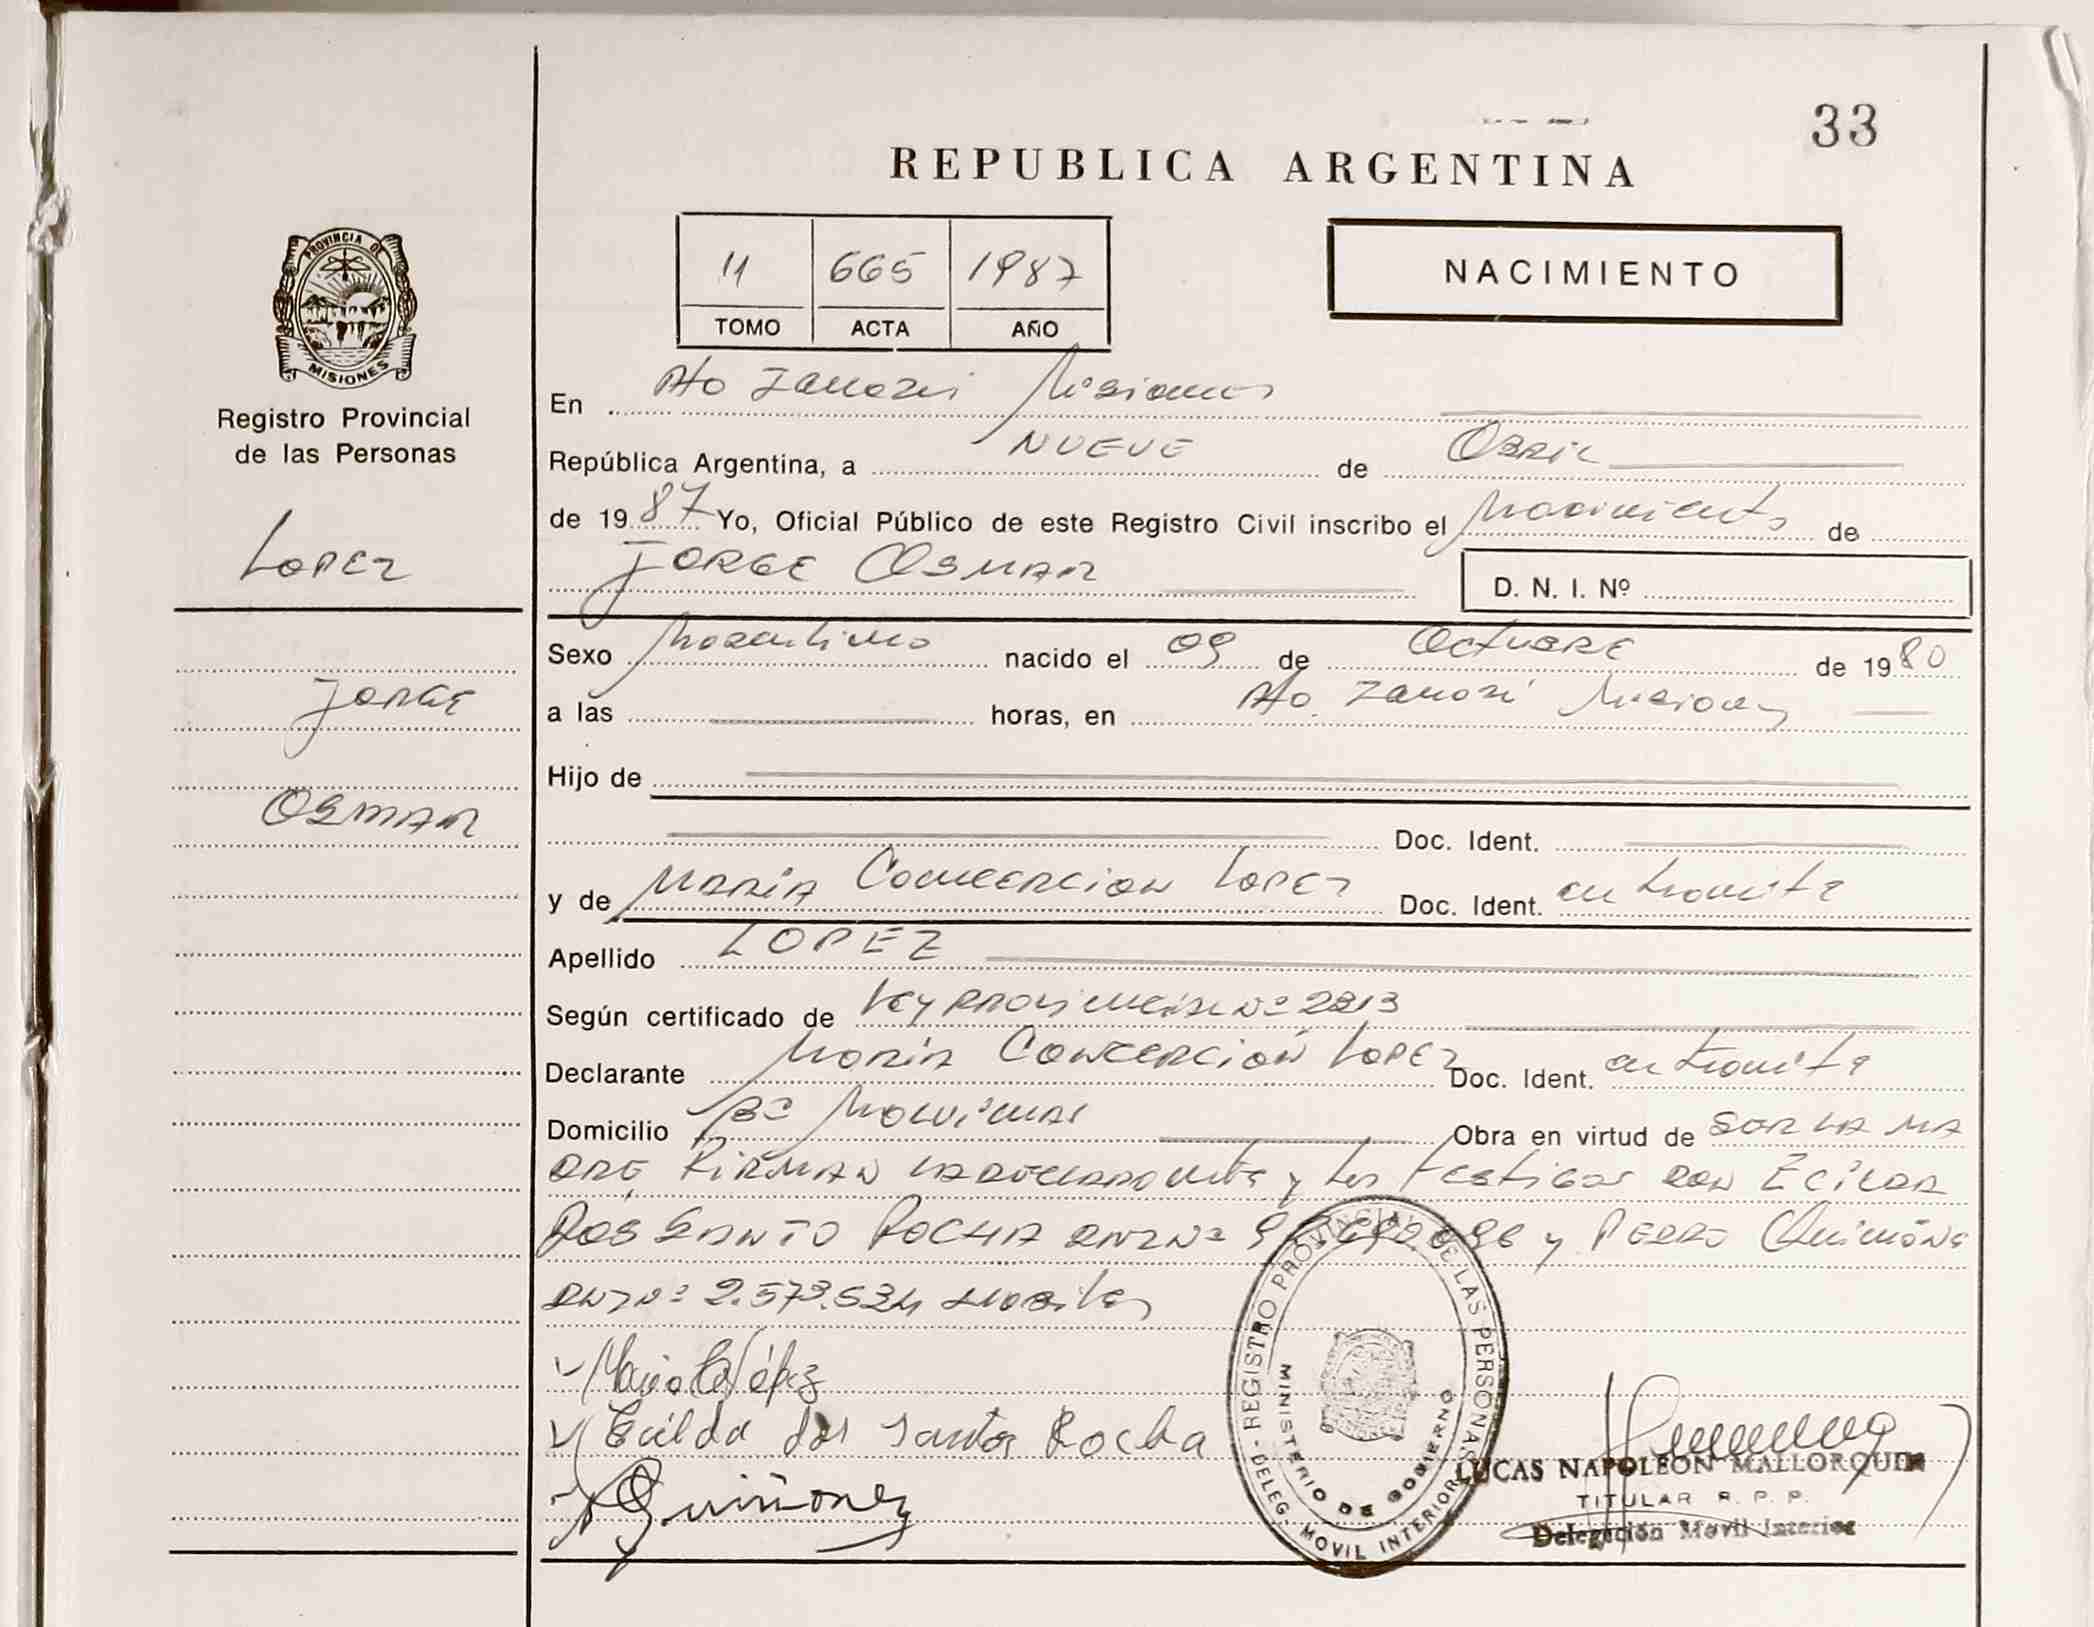 33
REPUBLICA ARGENTINA
11 665 1987
TOMO ACTA AÑO
NACIMIENTO
PROVINCIA DE
MISIONES
Registro Provincial
de las Personas
LOPEZ
JORGE
OSMAR
En Pto Misiones
República Argentina, a NUEVE de ABRIL
de 1987 Yo, Oficial Público de este Registro Civil inscribo el Nacimiento de
JORGE OSMAR D. N. I. Nº
Sexo Masculino nacido el 09 de OCTUBRE de 1980
a las horas, en Pto. Misiones
Hijo de
Doc. Ident.
y de MARÍA CONCEPCION LOPEZ Doc. Ident. en tramite
Apellido LOPEZ
Según certificado de Ley PROVINCIAL Nº 2213
Declarante MARÍA CONCEPCIÓN LOPEZ Doc. Ident. en tramite
Domicilio Bº Obra en virtud de SER LA MA
DRE FIRMAN LA DECLARANTE y los testigos DON
DOS SANTO ROCHA DNI Nº y PEDRO
DNI Nº 2.573.534
María C López
dos Santos Rocha
Quiñonez
REGISTRO PROVINCIAL DE LAS PERSONAS - DELEG. MOVIL INTERIOR
MINISTERIO DE GOBIERNO
LUCAS NAPOLEON MALLORQUIN
TITULAR R. P. P.
Delegación Movil Interior